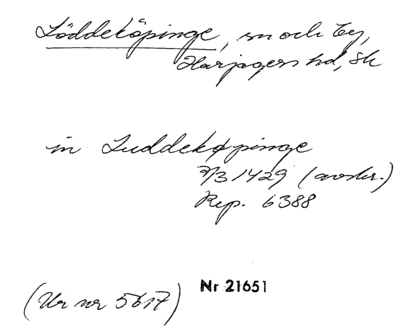 Löddeköpinge, sn och by,
Harjagers hd, Sk
in Luddekøpinge
7/3 1429 (avskr.)
Rep. 6388
(Ur nr 5617) Nr 21651